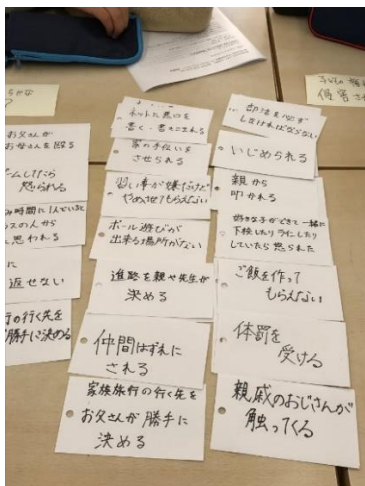 お父さんが
お母さんを殴る
ームしてたら
怒られる
み時間に1人でいると
スの人から
思われる
に
返せない
行の行く先を
勝手に決める
ネットに悪口を
書く・書きこまれる
家の手伝いを
させられる
習い事が嫌だけど
やめさせてもらえない
ボール遊びが
出来る場所がない
進路を親や先生が
決める
仲間はずれに
される
家族旅行の行く先を
お父さんが勝手に
決める
部活を必ず
しなければならない
いじめられる
親から
叩かれる
好きな子ができて一緒に
下校したりラインしたり
していたら怒られた
ご飯を作って
もらえない
体罰を
受ける
親戚のおじさんが
触ってくる